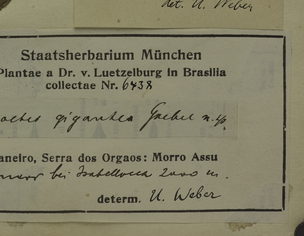 det. U. Weber
Staatsherbarium München
Plantae a Dr. v. Luetzelburg in Brasilia
collectae Nr. 6438
gigantea Goebel n. sp.
aneiro, Serra dos Orgaos: Morro Assu
bei 2000 m.
determ. U. Weber